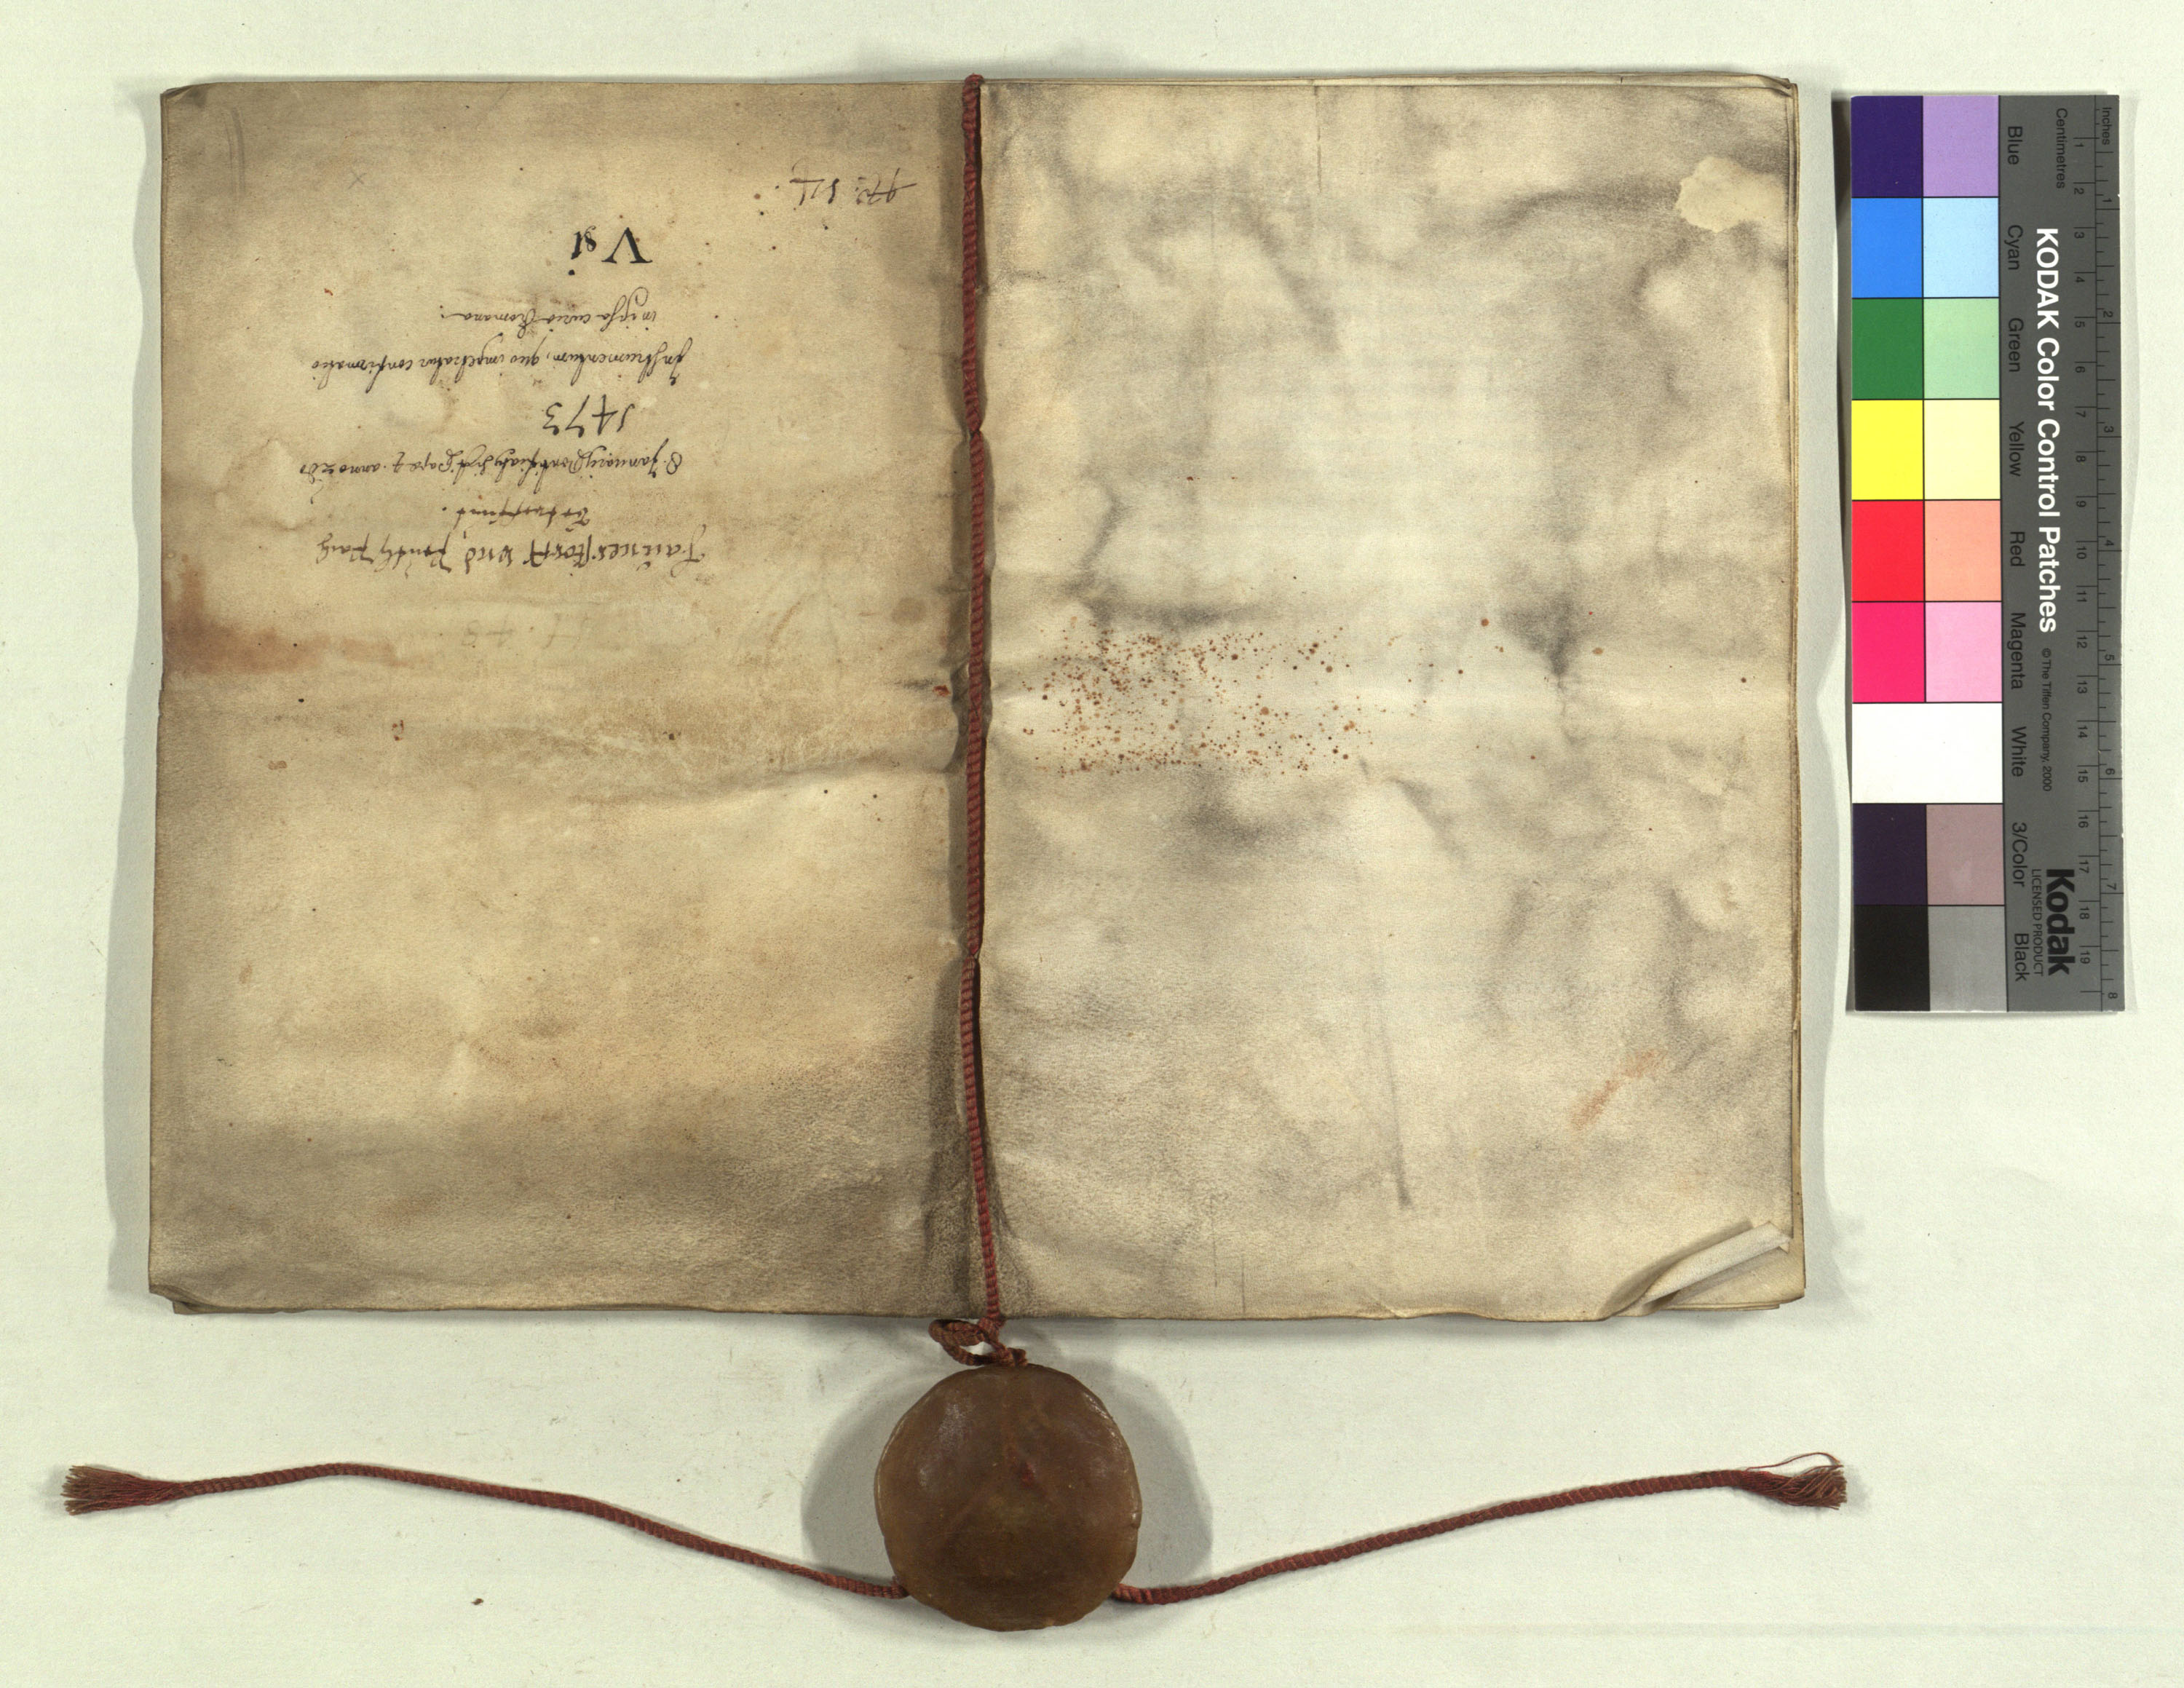 Jaünerstorff und
8. January Pontificatus Sixti Pape 4. anno 2do
1473
Instrumentum, quo impetratur confirmatio
in ipsa curia Romana.
V 81
KODAK Color Control Patches
© The Tiffen Company, 2000
Kodak
LICENSED PRODUCT
Inches
Centimetres
1 2 3 4 5 6 7 8
1 2 3 4 5 6 7 8 9 10 11 12 13 14 15 16 17 18 19
Blue
Cyan
Green
Yellow
Red
Magenta
White
3/Color
Black